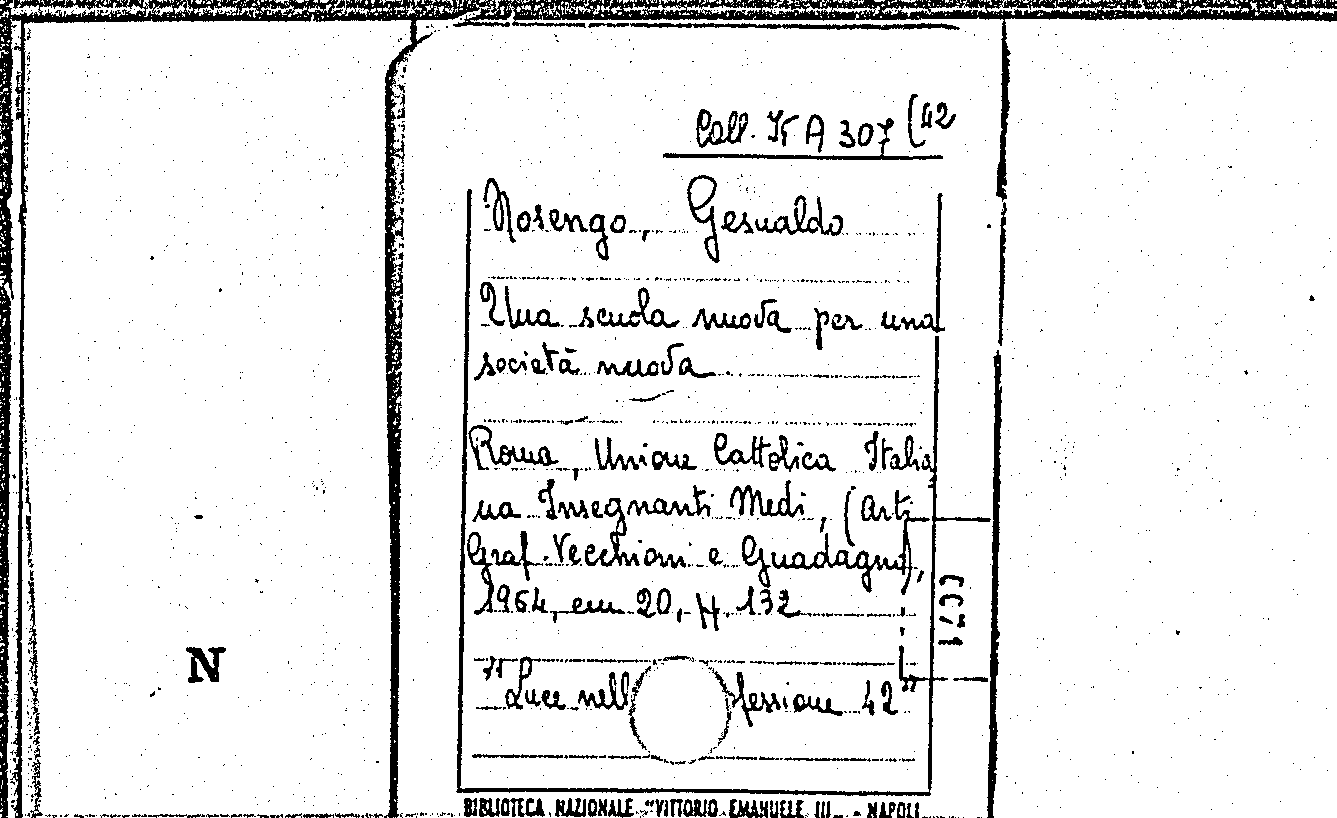 Coll. IV A 307 (42
Nosengo, Gesualdo
Una scuola nuova per una
società nuova
Roma, Unione Cattolica Italia
na Insegnanti Medi, (Arti
Graf. Vecchioni e Guadagno),
1964, cm 20, pp. 132
"Luce nell fessione 42"
0071
N
BIBLIOTECA NAZIONALE "VITTORIO EMANUELE III" - NAPOLI